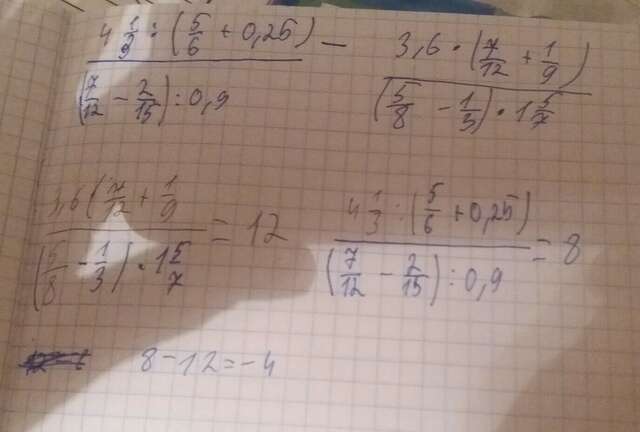 4 1/3 : (5/6 + 0,25) / (7/12 − 2/15) : 0,9 − 3,6 · (7/12 + 1/9) / (5/8 − 1/3) · 1 5/7
3,6 (7/12 + 1/9 / (5/8 − 1/3) · 1 5/7 = 12
4 1/3 : (5/6 + 0,25) / (7/12 − 2/15) : 0,9 = 8
8 − 12 = − 4